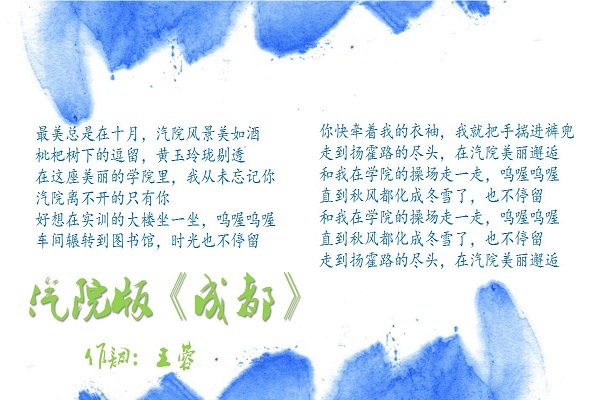 最美总是在十月，汽院风景美如酒
枇杷树下的逗留，黄玉玲珑剔透
在这座美丽的学院里，我从未忘记你
汽院离不开的只有你
好想在实训的大楼坐一坐，呜喔呜喔
车间辗转到图书馆，时光也不停留
你快牵着我的衣袖，我就把手揣进裤兜
走到扬霍路的尽头，在汽院美丽邂逅
和我在学院的操场走一走，呜喔呜喔
直到秋风都化成冬雪了，也不停留
和我在学院的操场走一走，呜喔呜喔
直到秋风都化成冬雪了，也不停留
走到扬霍路的尽头，在汽院美丽邂逅
汽院版《成都》
作词：王蓉